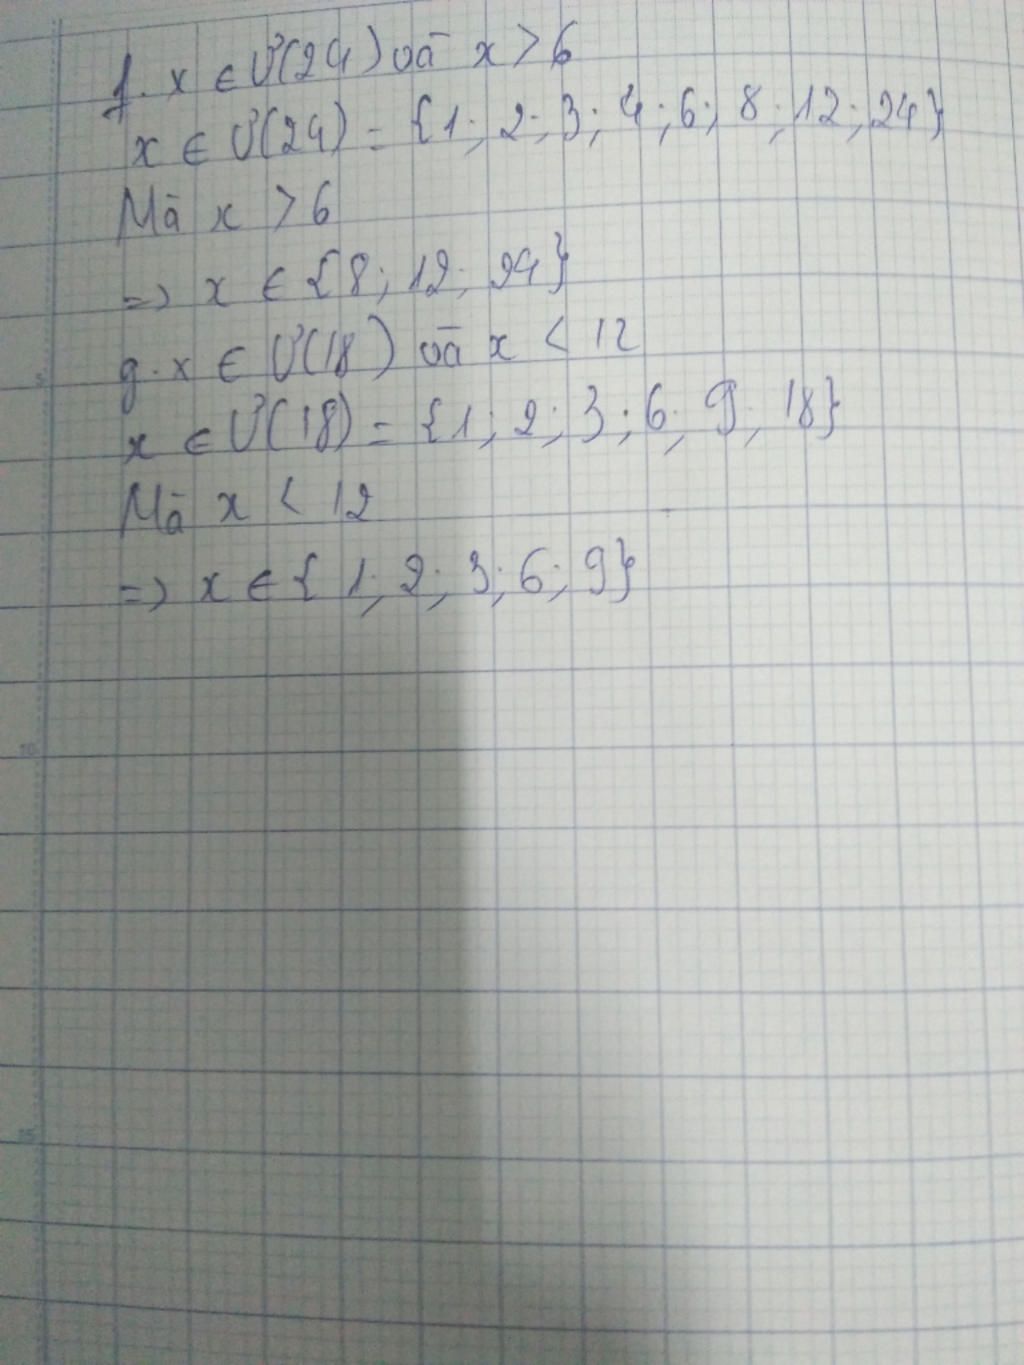 f. x ∈ Ư(24) và x > 6
x ∈ Ư(24) = {1; 2; 3; 4; 6; 8; 12; 24}
Mà x > 6
=> x ∈ {8; 12; 24}
g. x ∈ Ư(18) và x < 12
x ∈ Ư(18) = {1; 2; 3; 6; 9; 18}
Mà x < 12
=> x ∈ { 1; 2; 3; 6; 9}
5
10
15